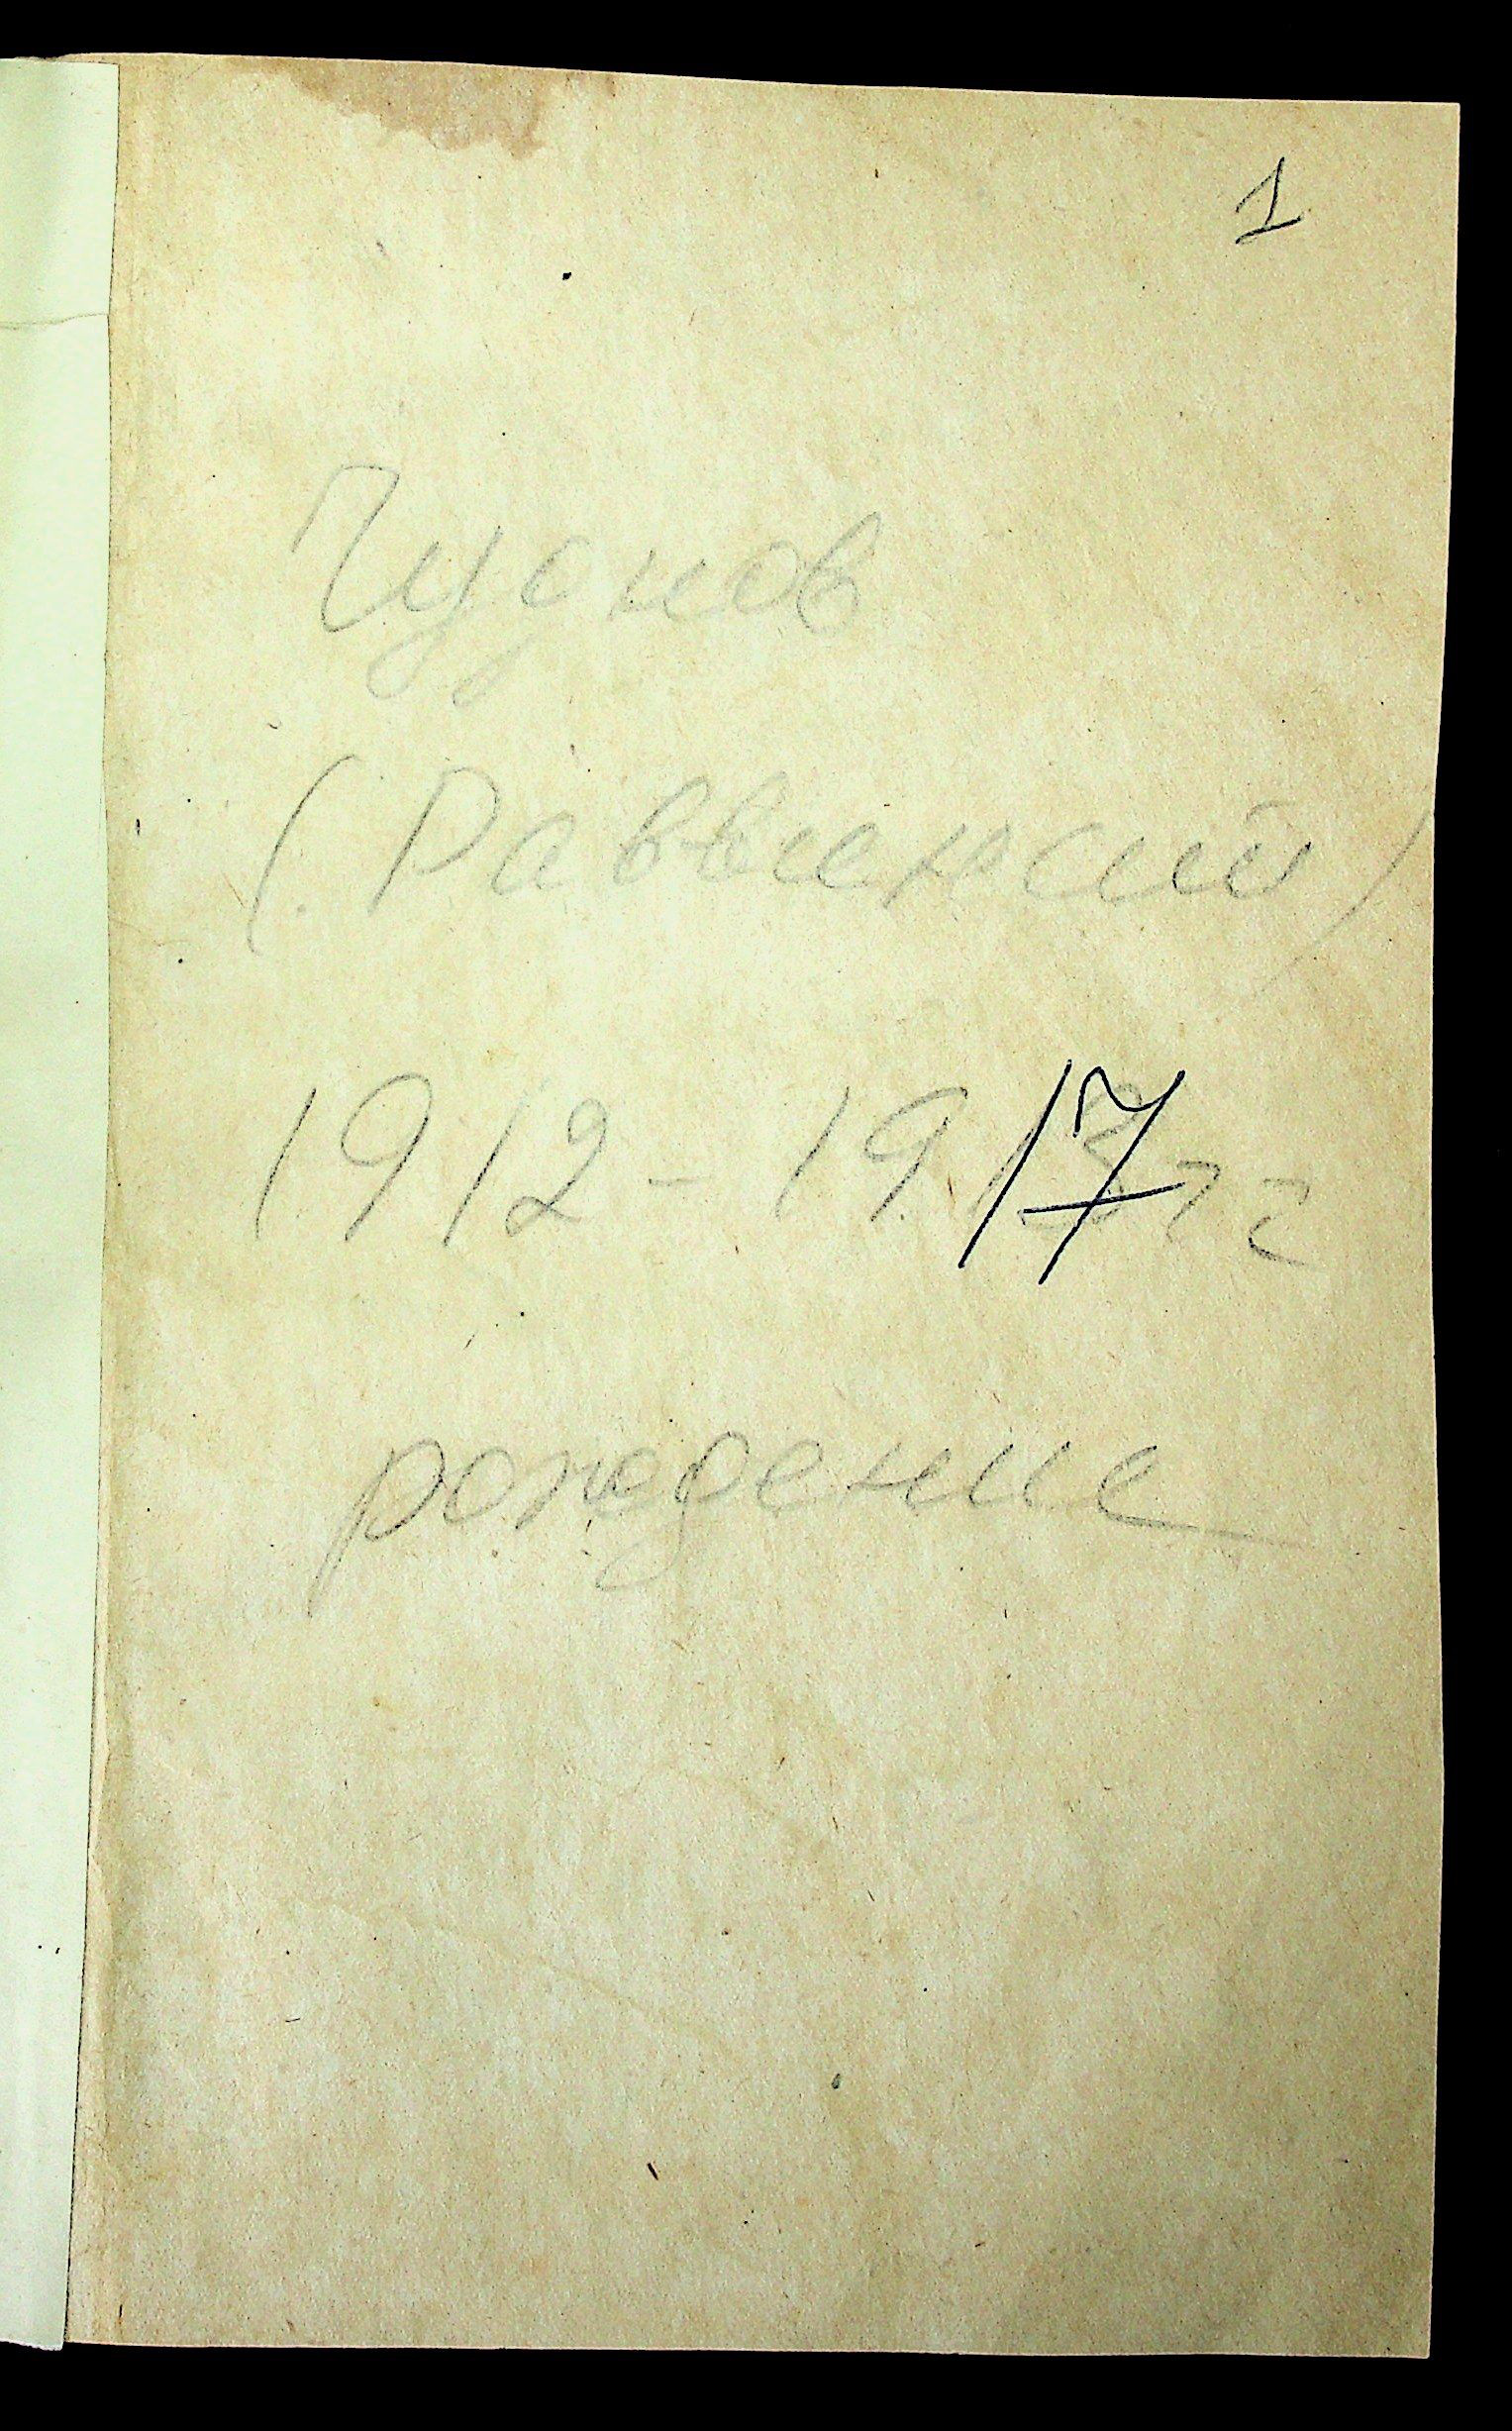 1
Чуднов
(Раввинский)
1912 - 1917 гг
рождение